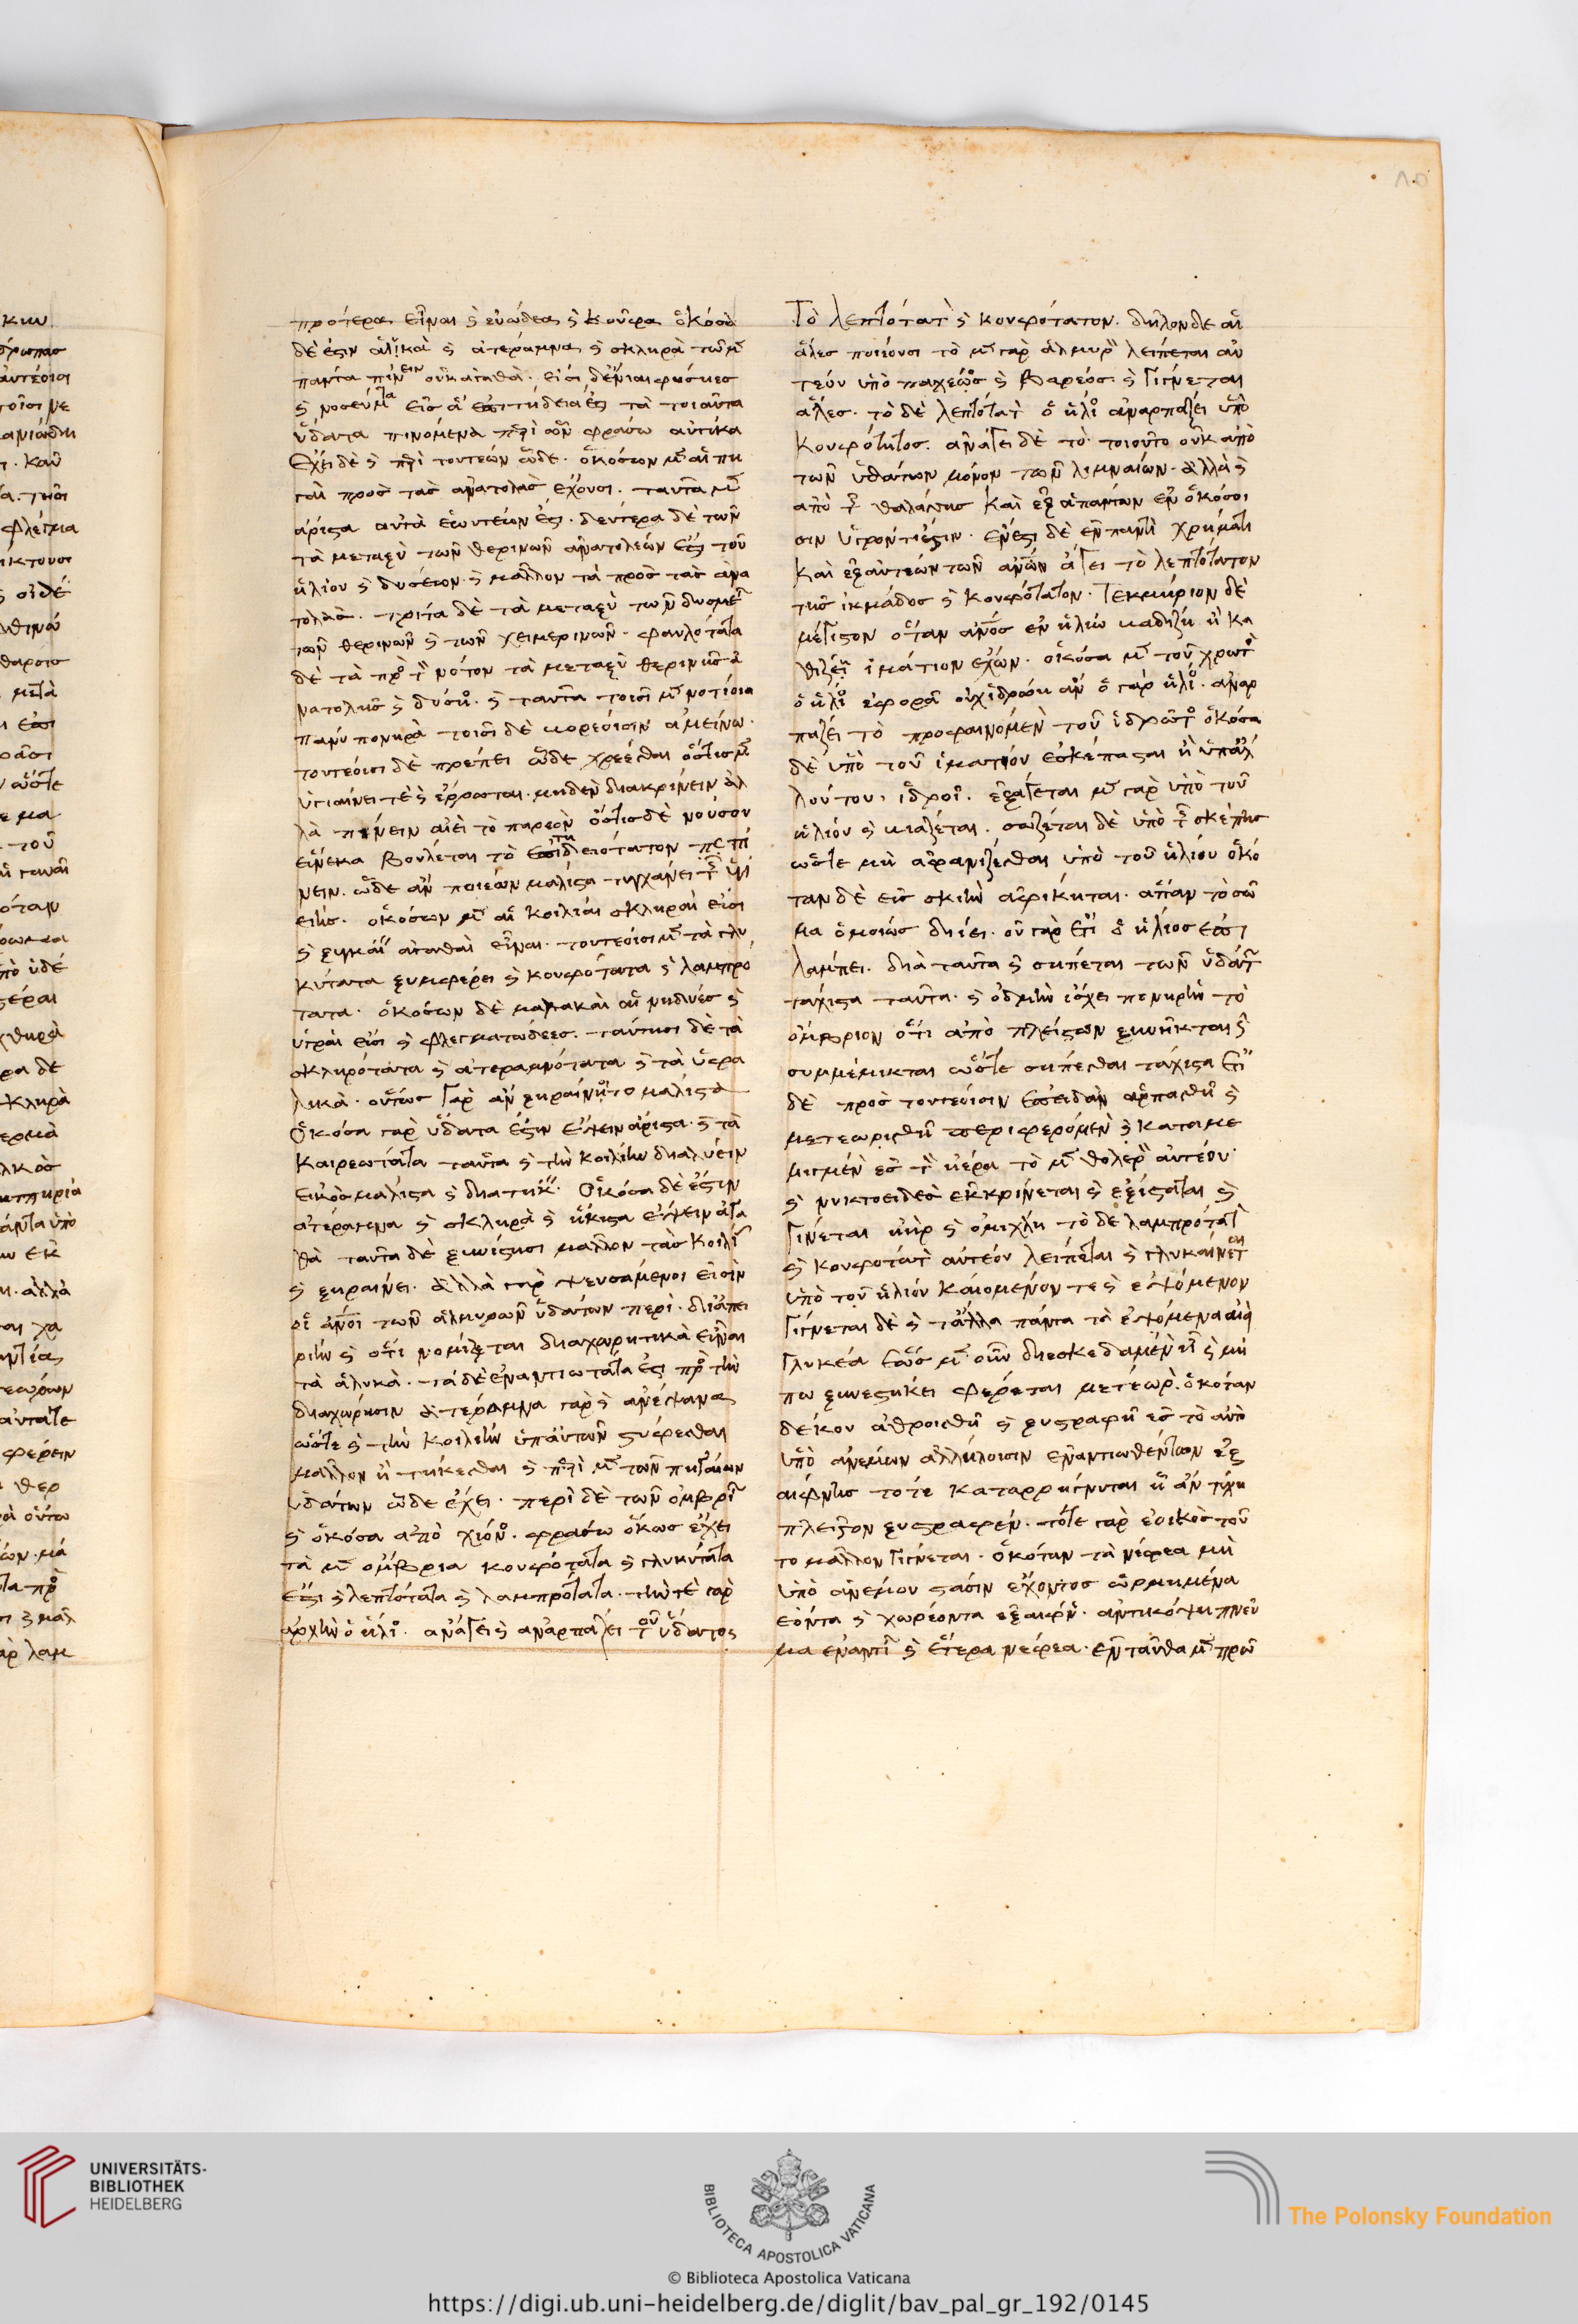 πρότερα εἶναι ϗ εὐώδεα ϗ κοῦφα ὁκόσα
δέ ἐστιν ἁλϊκὰ ϗ ἀτέραμνα ϗ σκληρὰ τῶ μ̑
πάντα πίνειν οὐκ ἀγαθά. εἰσὶ δἔνιαι φύσιες
ϗ νοσεύμτα εἰς ἃ ἐπιτήδειά ἐστι τὰ τοιαῦτα
ὕδατα πινόμενα περὶ ὧν φράσω αὐτίκα
ἔχει δὲ ϗ περὶ τουτέων ὧδε. ὁκόσων μ̑ αἱ πη
γαὶ πρὸς τὰς ἀνατολὰς ἔχουσι. ταῦτα μ̑
ἄριστα αὐτὰ ἑωυτέων ἐστι. δεύτερα δὲ τῶν
τὰ μεταξὺ τῶν θερινῶν ἀνατολέων ἐστὶ τοῦ
ἡλίου ϗ δυσέων. ϗ μᾶλλον τὰ πρὸς τὰς ἀνα
τολάς. τρίτα δὲ τὰ μεταξὺ τῶν δυσμέ
ων θερινῶν ϗ τῶν χειμερινῶν. φαυλότατα
δὲ τὰ πρὸς τὸν νότον τὰ μεταξὺ θερινῆς ἀ
νατολῆς ϗ δύσιος. ϗ ταῦτα τοῖσι μ̑ νοτίοισι
πάνυ πονηρὰ τοῖσι δὲ βορεόισιν ἀμείνω.
τουτέοισι δὲ πρέπει ὧδε χρέεσθαι ὅστις μ̑
ὑγιαίνει τὲ ϗ ἔρρωται. μηδὲν διακρίνειν ἀλ
λὰ πίνειν αἰεὶ τὸ παρεὸν ὅστις δὲ νούσου
εἵνεκα βούλεται τὸ ἐπιτηδειότατον πί
νειν. ὧδε ἂν ποιέων μάλιστα τυγχάνει τῆς ὑγι
είης. ὁκόσων μ̑ αἱ κοιλίαι σκληραὶ εἰσὶ
ϗ ξυγκαίειν ἀγαθαὶ εἶναι. τουτέοισι μ̑ τὰ γλυ
κύτατα ξυμφέρει ϗ κουφότατα ϗ λαμπρό
τατα. ὁκόσων δὲ μαλακαὶ αἱ νηδύες ϗ
ὑγραὶ εἰσι ϗ φλεγματώδεες. ταύτῃσι δὲ τὰ
σκληρότατα ϗ ἀτεραμνότατα ϗ τὰ ὕφα
λυκά. οὕτως γὰρ ἂν ξηραίνοιτο μάλιστα
ὁκόσα γὰρ ὕδατα ἐστιν ἕψειν ἄριστα. ϗ τὰ
καιρεωτάτα ταῦτα ϗ τὴν κοιλίην διαλύειν
εἰκὸς μάλιστα ϗ διατήκειν. ὁκόσα δὲ ἐστιν
ἀτέραμνα ϗ σκληρὰ ϗ ἥκιστα ἕψειν ἀγα
θὰ ταῦτα δὲ ξυνίστησι μᾶλλον τὰς κοιλίας
ϗ ξηραίνει. ἀλλὰ γὰρ ψευσάμενοι εἰσὶν
οἱ ἄνοι τῶν ἁλμυρῶν ὑδάτων περὶ. δι' ἀπει
ρίην ϗ ὅτι νομίζεται διαχωρητικὰ εἶναι
τὰ ἁλυκά. τὰ δὲ ἐναντιωτάτα ἐστι πρὸς τὴν
διαχώρησιν ἀτέραμνα γὰρ ϗ ἀνέψανα
ὥστε ϗ τὴν κοιλίην ὑπ' αὐτῶν στύφεσθαι
μᾶλλον ἢ τήκεσθαι ϗ περὶ μ̑ τῶν πηγαίων
ὑδάτων ὧδε ἔχει. περὶ δὲ τῶν ὀμβρίων
ϗ ὁκόσα ἀπὸ χιόνος. φράσω ὅκως ἔχει
τὰ μ̑ ὄμβρια κουφότατα ϗ γλυκύτατα
ἐστι ϗ λεπτότατα ϗ λαμπρότατα. τήν τὲ γὰρ
ἀρχὴν ὁ ἥλιος. ἀνάγει ϗ ἀναρπάζει τοῦ ὕδατος
τὸ λεπτότατον ϗ κουφότατον. δῆλον δὲ αἱ
ἅλες ποιέουσι τὸ μ̑ γὰρ ἁλμυρὸν λείπεται αὐ
τεύν ὑπὸ παχέως ϗ βαρέος. ϗ γίγνεται
ἅλες. τὸ δὲ λεπτότατον ὁ ἥλιος ἀναρπάζει ὑπὸ
κουφότητος. ἀνάγει δὲ τὸ τοιοῦτο οὐκ ἀπὸ
τῶν ὑδάτων μόνον τῶν λιμναίων. ἀλλὰ ϗ
ἀπὸ τῆς θαλάσσης καὶ ἐξ ἁπάντων ἐν ὁκόσοι
σιν ὑγρόν τι ἐστιν. ἔνεστι δὲ ἐν παντὶ χρήματι
καὶ ἐξ αὐτέων τῶν ἀνῶν ἄγει τὸ λεπτότατον
τῆς ἰκμάδος ϗ κουφότατον. τεκμήριον δὲ
μέγιστον ὅταν ἄνος ἐν ἡλίω βαδίζῃ ἢ κα
θίζει ἱμάτιον ἔχων. ὁκόσα μ̑ τοῦ χρωτὸς
ὁ ἥλιος ἐφορᾶ οὐχ ἱδρώῃ ἂν ὁ γὰρ ἥλιος. ἀναρ
πάζει τὸ προφαινόμενον τοῦ ἱδρῶτος ὁκόσα
δὲ ὑπὸ τοῦ ἱματίου ἐσκέπασται ἢ ὑπ' ἄλ
λου του, ἱδροῖ. ἐξάγεται μ̑ γὰρ ὑπὸ τοῦ
ἡλίου ϗ βιάζεται. σώζεται δὲ ὑπὸ τῆς σκέπης
ὥστε μὴ ἀφανίζεσθαι ὑπὸ τοῦ ἡλίου ὁκό
ταν δὲ εἰς σκιὴν ἀφίκηται. ἅπαν τὸ σῶ
μα ὁμοίως διίει. οὐ γὰρ ἔτι ὁ ἥλιος ἐπι
λάμπει. διὰ ταῦτα ϗ σήπεται τῶν ὑδάτων
τάχιστα ταῦτα. ϗ ὀδμὴν ἴσχει πονηρὴν τὸ
ὄμβριον ὅτι ἀπὸ πλείστων ξυνῆκται ϗ
συμμέμικται ὥστε σήπεσθαι τάχιστα ἔτι
δὲ πρὸς τουτέοισιν ἐπειδὰν ἁρπασθῆ ϗ
μετεωρισθῆ περιφερόμενον ϗ καταμε
μιγμένον ἐς τὸν ἠέρα τὸ μ̑ θολερὸν αὐτέου.
ϗ νυκτοειδὲς ἐκκρίνεται ϗ ἐξίσταται ϗ
γίνεται ἠὴρ ϗ ὀμίχλη τὸ δὲ λαμπρότατον
ϗ κουφότατον αὐτέου λείπεται ϗ γλυκαίνεται
ὑπὸ τοῦ ἡλίου καιόμενόν τε ϗ ἑψόμενον
γίγνεται δὲ ϗ τἄλλα πάντα τὰ ἑψόμενα αἰεὶ
γλυκέα ἕως μ̑ οὖν διεσκεδασμένον ἦ ϗ μή
πω ξυνεστήκει φέρεται μετέωρον. ὁκόταν
δέ κου ἀθροισθῆ ϗ ξυστραφῆ ἐς τὸ αὐτὸ
ὑπὸ ἀνέμων ἀλλήλοισιν ἐναντιωθέντων ἐξ
αίφνης τότε καταρρήγνυται ἧ ἂν τύχῃ
πλεῖστον ξυστραφέν. τότε γὰρ ἐοικὸς τοῦ
το μᾶλλον γίγνεται. ὁκόταν τὰ νέφεα μὴ
ὑπὸ ἀνέμου στάσιν ἔχοντος ὡρμημένα
ἐόντα ϗ χωρέοντα ἐξαίφνης. ἀντικόψῃ πνεῦ
μα ἐναντίον ϗ ἕτερα νέφεα. ἐνταῦθα μ̑ πρῶ
UNIVERSITÄTS-
BIBLIOTHEK
HEIDELBERG
BIBLIOTECA APOSTOLICA VATICANA
The Polonsky Foundation
© Biblioteca Apostolica Vaticana
https://digi.ub.uni-heidelberg.de/diglit/bav_pal_gr_192/0145